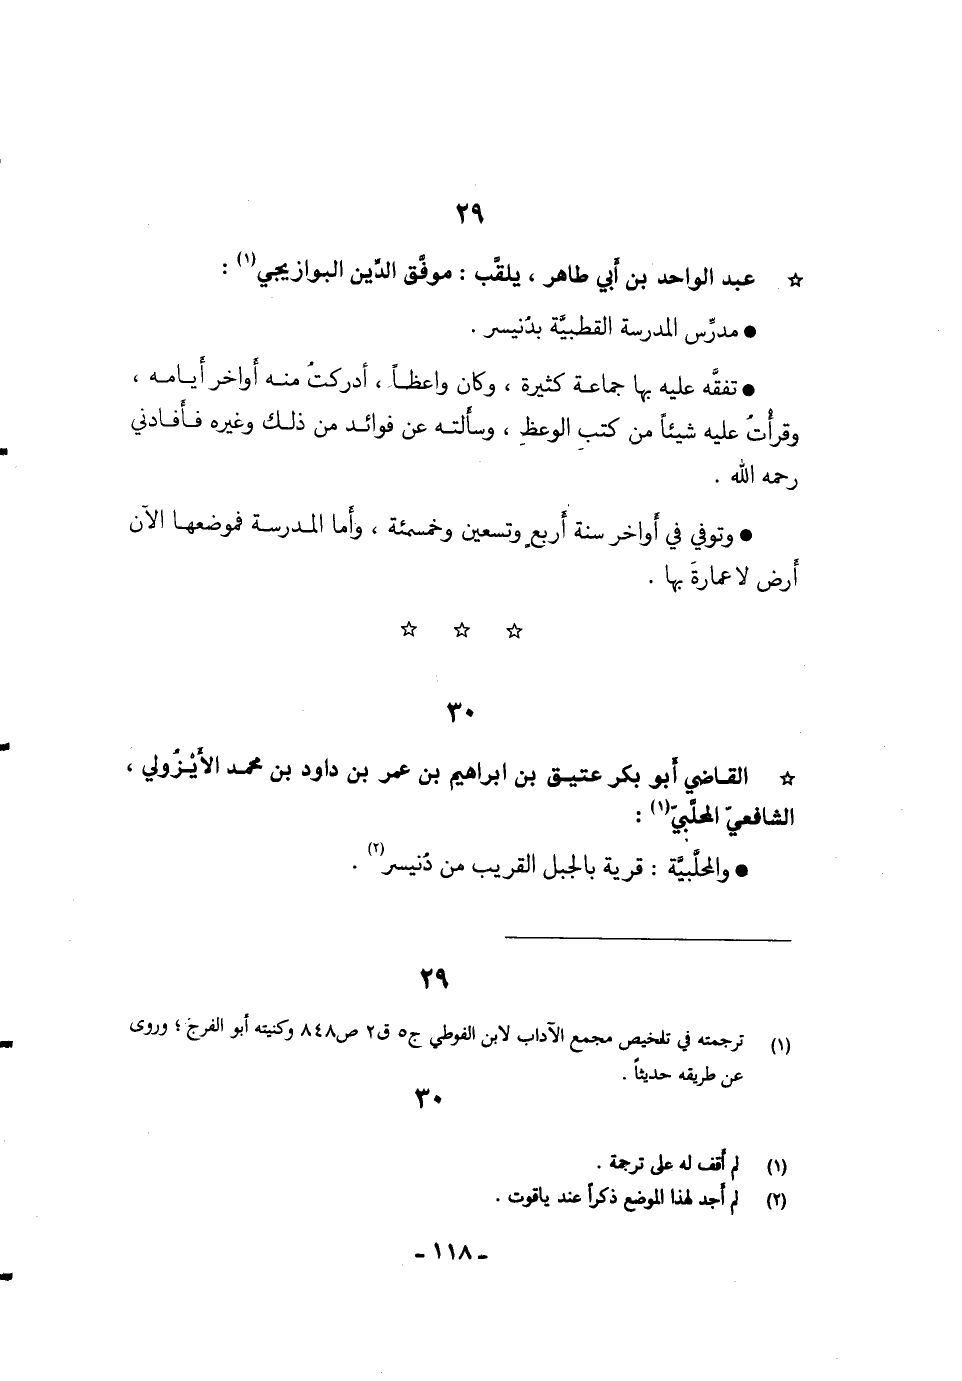 ٢٩
☆ عبد الواحد بن أبي طاهر ، يلقَّب : موفَّق الدِّين البوازيجي(١) :
● مدرِّس المدرسة القطبيَّة بدُنيسر .
● تفقَّه عليه بها جماعة كثيرة ، وكان واعظاً ، أدركتُ منه أواخر أيامه ،
وقرأْتُ عليه شيئاً من كتب الوعظِ ، وسألته عن فوائد من ذلك وغيره فأفادني
رحمه الله .
● وتوفي في أواخر سنة أربعٍ وتسعين وخمسمئة ، وأما المدرسة فموضعها الآن
أرض لا عمارةَ بها .
☆ ☆ ☆
٣٠
☆ القاضي أبو بكر عتيق بن ابراهيم بن عمر بن داود بن محمد الأَيْزُولي ،
الشافعيّ المحلَّبيّ(١) :
● والمحلَّبيَّة : قرية بالجبل القريب من دُنيسر(٢) .
٢٩
(١) ترجمته في تلخيص مجمع الآداب لابن الفوطي ج٥ ق٢ ص٨٤٨ وكنيته أبو الفرج ؛ وروى
عن طريقه حديثاً .
٣٠
(١) لم أقف له على ترجمة .
(٢) لم أجد لهذا الموضع ذكراً عند ياقوت .
- ١١٨ -